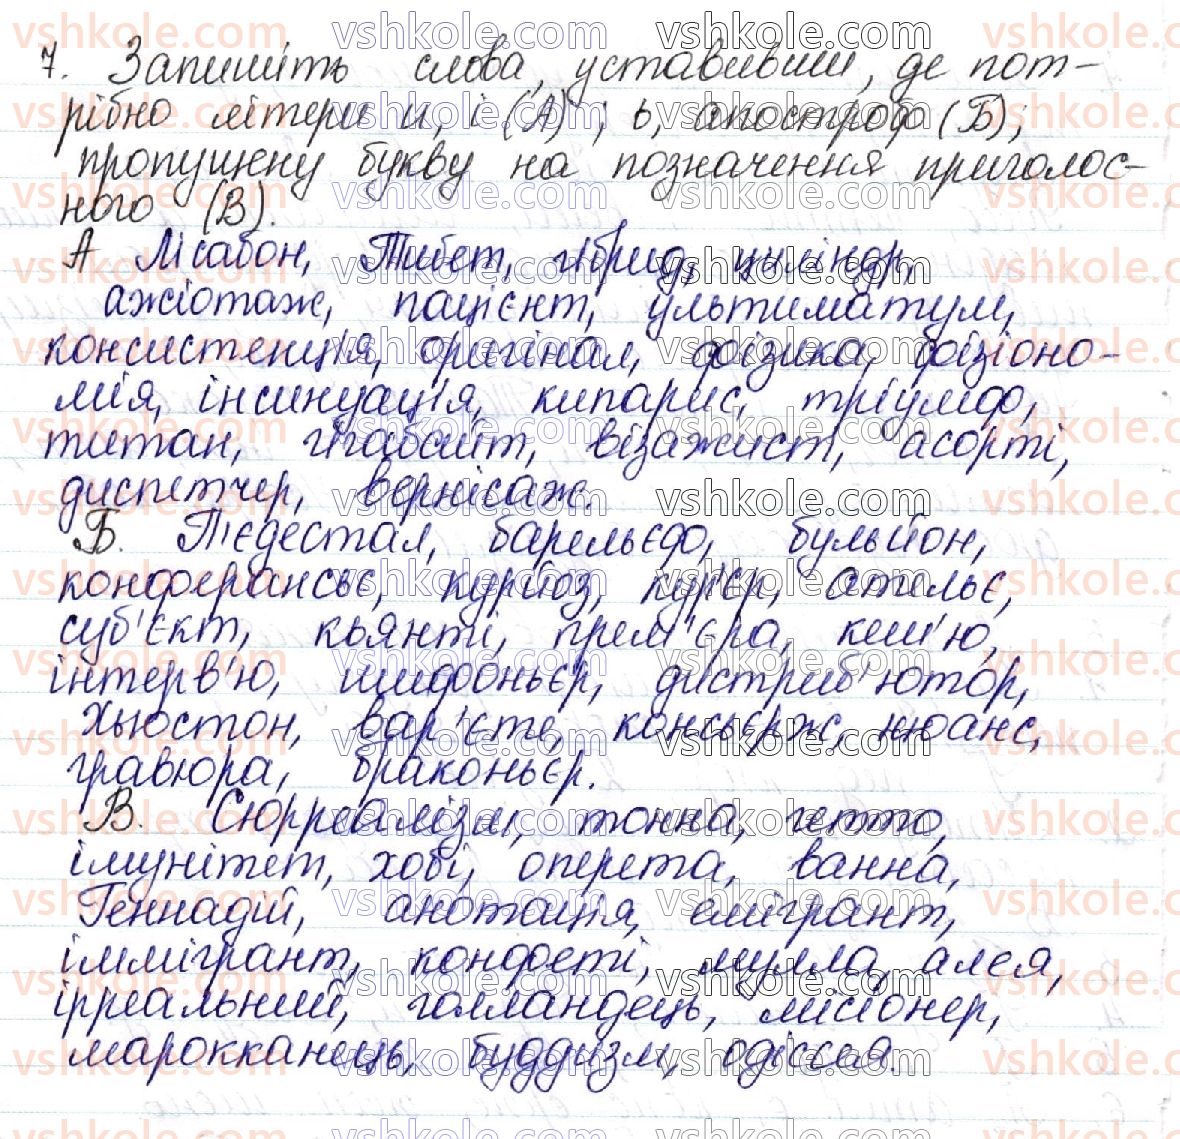 7. Запишіть слова, уставивши, де пот-
рібно літери и, і (А); ь, апостроф (Б);
пропущену букву на позначення приголос-
ного (В).
А Лісабон, Тибет, гібрид, циліндр,
ажіотаж, пацієнт, ультиматум,
консистенція, оригінал, фізика, фізіоно-
мія, інсинуація, кипарис, тріумф,
титан, гігабайт, візажист, асорті,
диспетчер, вернісаж.
Б. П'єдестал, барельєф, бульйон,
конферансьє, курйоз, кур'єр, ательє,
суб'єкт, кьянті, прем'єра, кеш'ю,
інтерв'ю, шифоньєр, дистриб'ютор,
Хьюстон, вар'єте, консьєрж, нюанс,
гравюра, браконьєр.
В. Сюрреалізм, тонна, гетто,
імунітет, хобі, оперета, ванна,
Геннадій, анотація, емігрант,
іммігрант, конфеті, мулла, алея,
ірреальний, голландець, місіонер,
марокканець, буддизм, одіссея.
vshkole.com